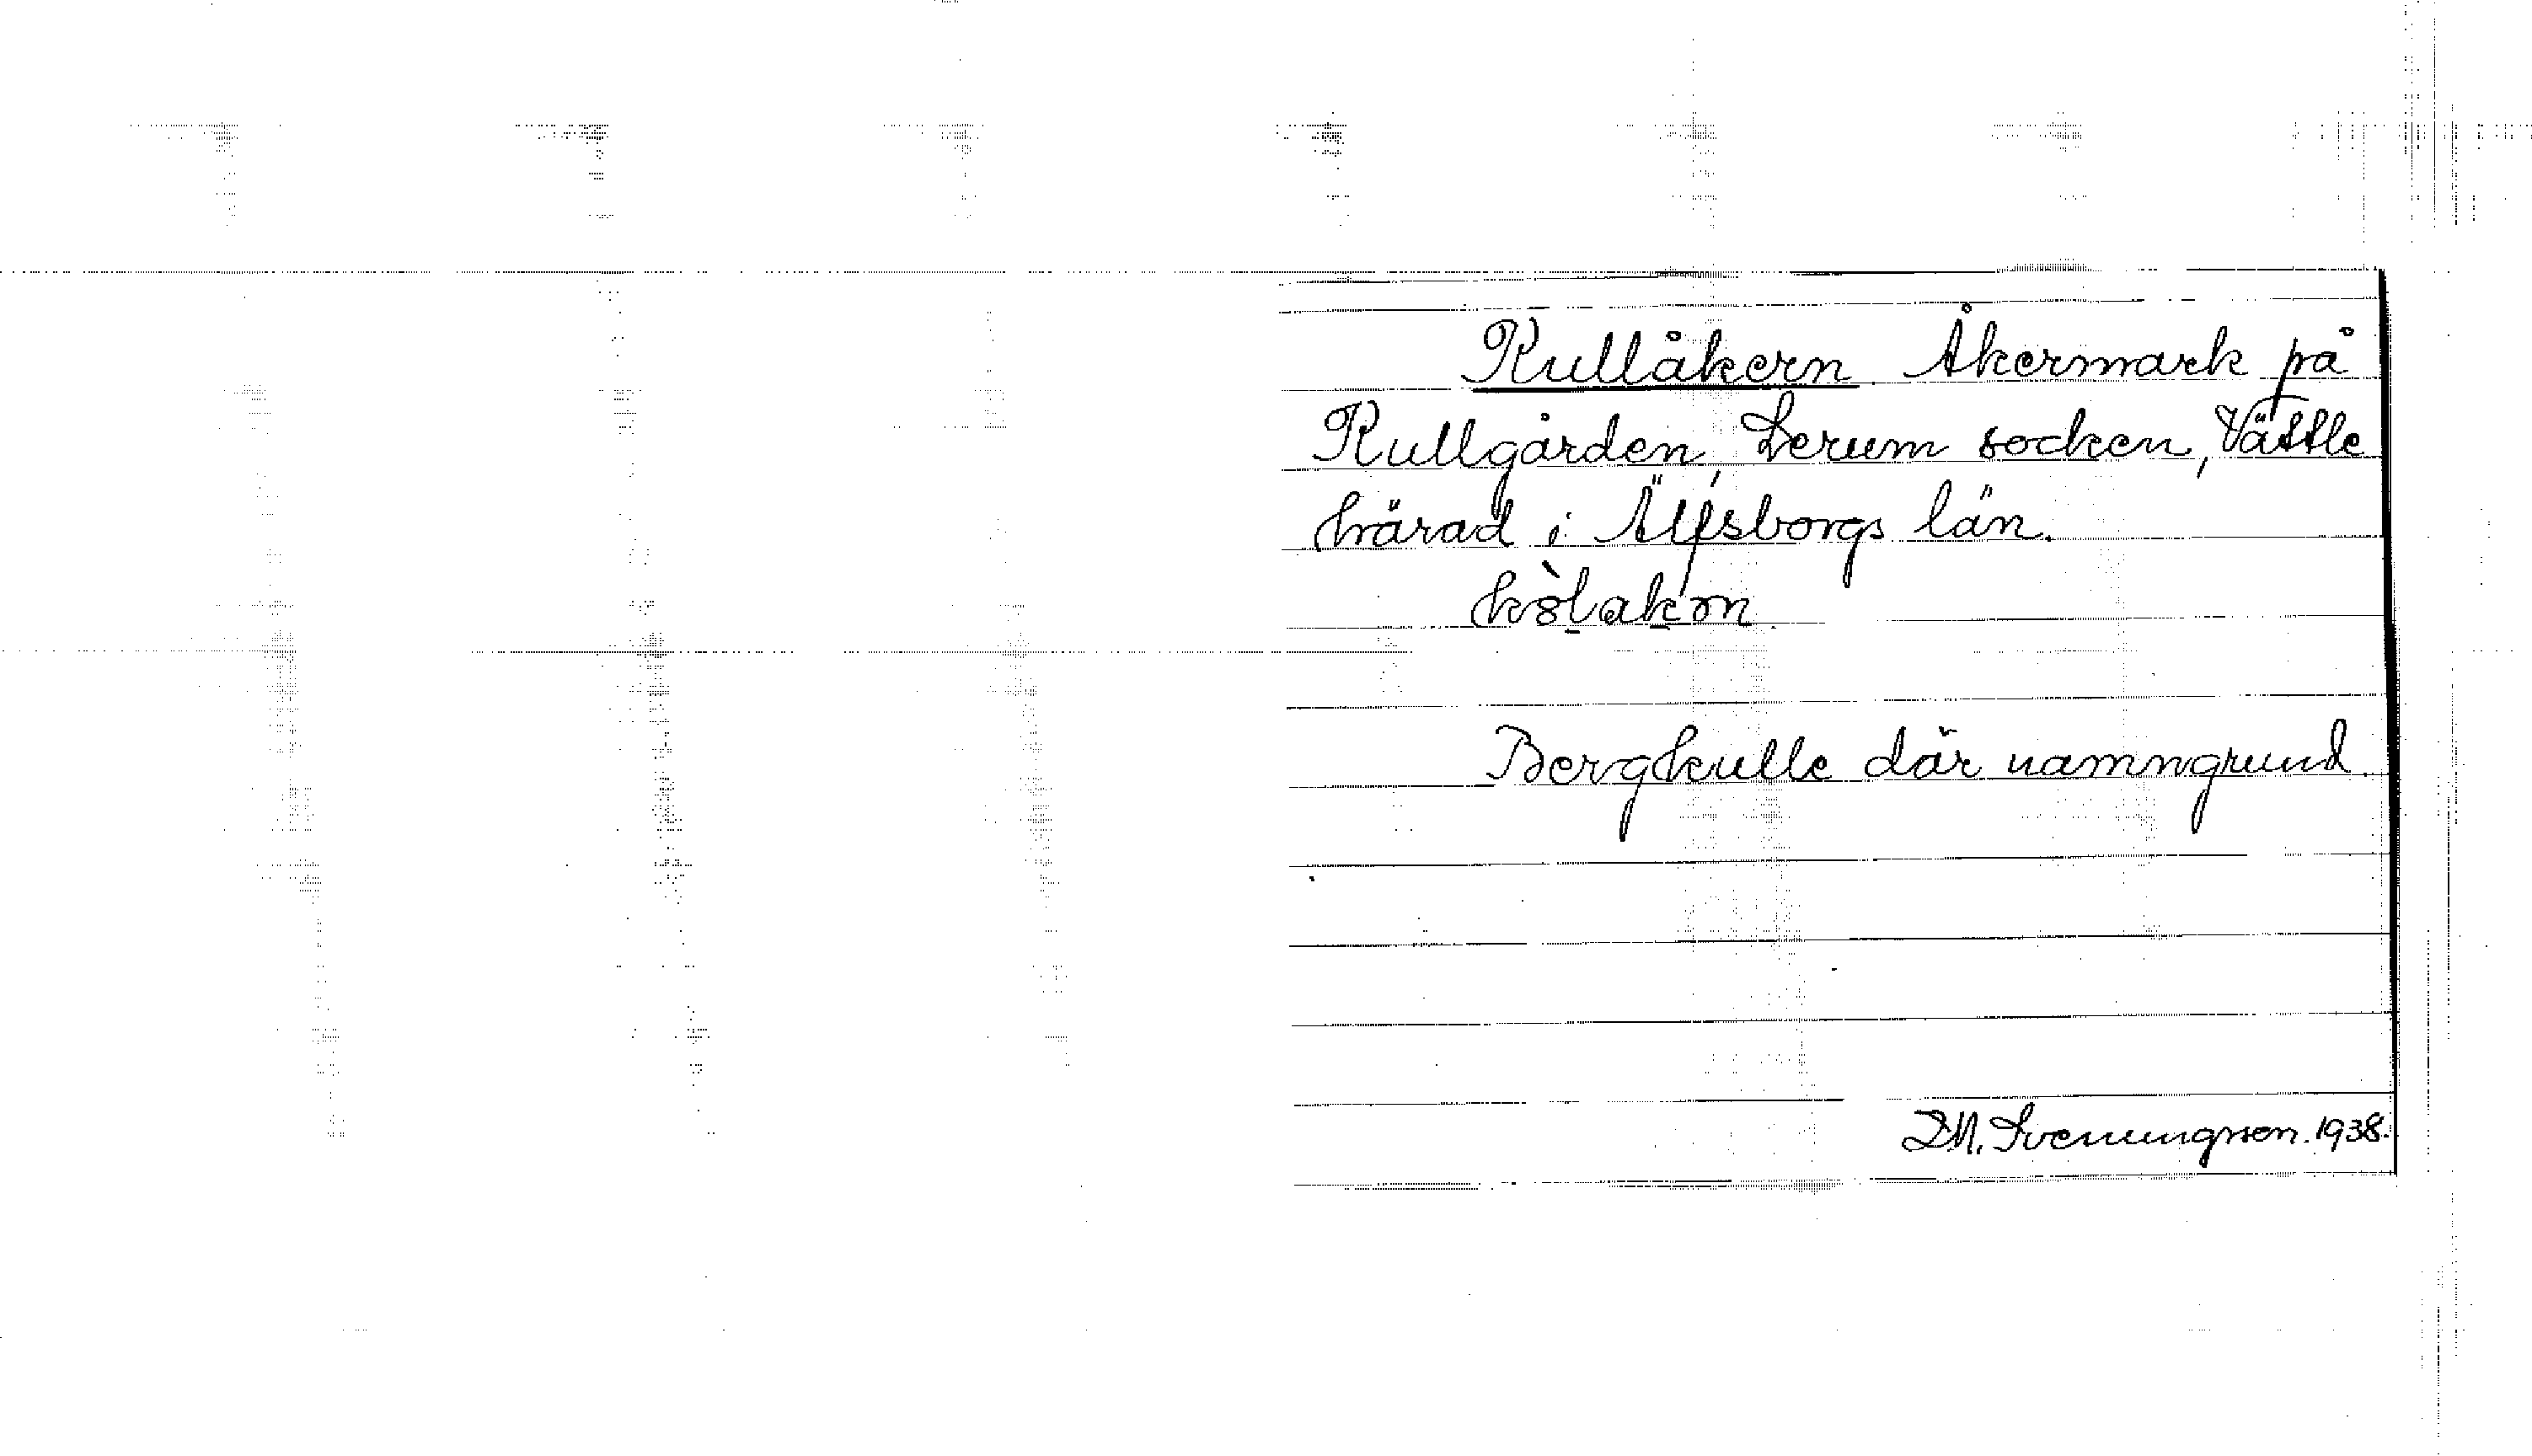 Kullåkern. Åkermark på
Kullgården, Lerum socken, Vättle
härad i Älfsborgs län.
Bergkulle där namngrund.
Svenningsson. 1938.